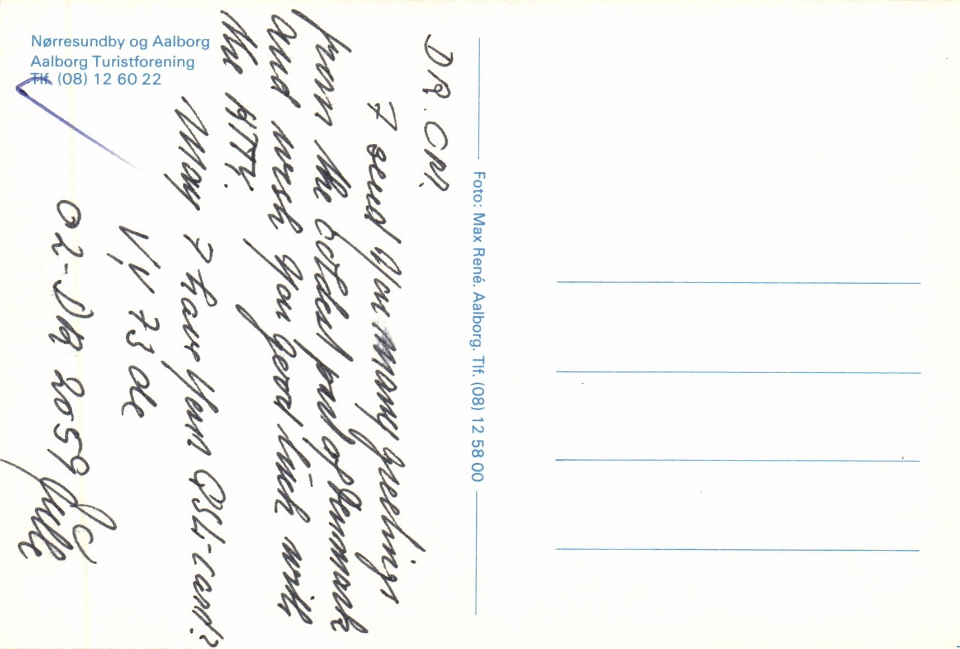 Nørresundby og Aalborg
Aalborg Turistforening
Tlf. (08) 12 60 22
DR. OM.
I send You many greetings
from the coldest part of Denmark
and wish you good luck with
the HTTY.
May I have Your QSL-card?
VY 73 de
OZ-DR 2059
Foto: Max René. Aalborg. Tlf. (08) 12 58 00